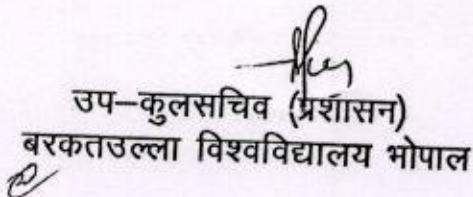 उप–कुलसचिव (प्रशासन)
बरकतउल्ला विश्वविद्यालय भोपाल